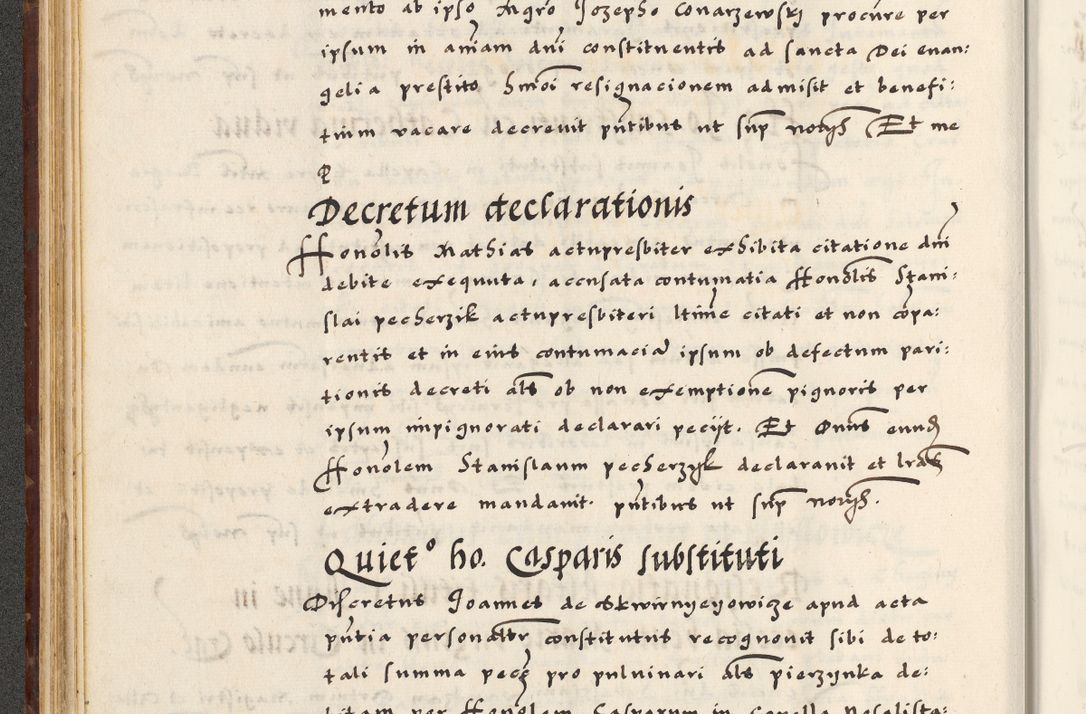 mento ab ipso Mgro Jozepho Conarzewskj procure per
ipsum in aniam dni constituentis ad sancta Dei euan:
gelia prestito hmoi resignacionem admisit et benefi:
tium vacare decreuit pntibus ut sup notarys Et me
Decretum declarationis
Honolis Mathias actupresbiter exhibita citatione dni
debite exequuta, accusata contumatia Honolis Stani:
slai pecherzik actupresbiteri ltime citati et non copa:
rentis et in eius contumacia ipsum ob defectum pari:
tionis decreti als ob non exemptione pignoris per
ipsum impignorati declarari pecijt. Et Dnus eund
Honolem Stanislaum pecherzyk declarauit et lras
extradere mandauit. pntibus ut sup notarys.
Quiet° ho. Casparis substituti
Discretus Joannes de Skwirnyeyowicze apud acta
pntia personalr constitutus recognouit sibi de to:
tali summa pecie pro puluinari als pierzynka de:
bitam per Honolem Casparum in Capella Nosalista: